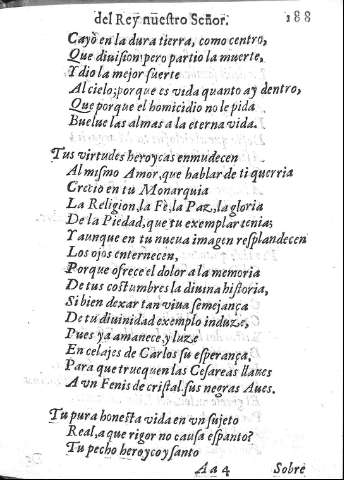 del Rey nuestro Señor. 188
Cayò en la dura tierra, como centro,
Que diuision; pero partio la muerte,
Y dio la mejor suerte
Al cielo; porque es vida quanto ay dentro,
Que porque el homicidio no le pida
Buelue las almas a la eterna vida.
Tus virtudes heroycas enmudecen
Al mismo Amor, que hablar de ti querria
Crecio en tu Monarquia
La Religion, la Fè, la Paz, la gloria
De la Piedad, que tu exemplar tenia;
Y aunque en tu nueua imagen resplandecen
Los ojos enternecen,
Porque ofrece el dolor a la memoria
De tus costumbres la diuina historia,
Si bien dexar tan viua semejança
De tu diuinidad exemplo induze,
Pues ya amanece, y luze
En celajes de Carlos su esperança,
Para que truequen las Cesareas llaues
A vn Fenis de cristal sus negras Aues.
Tu pura honesta vida en vn sujeto
Real, a que rigor no causa espanto?
Tu pecho heroyco y santo
Aa 4 Sobre